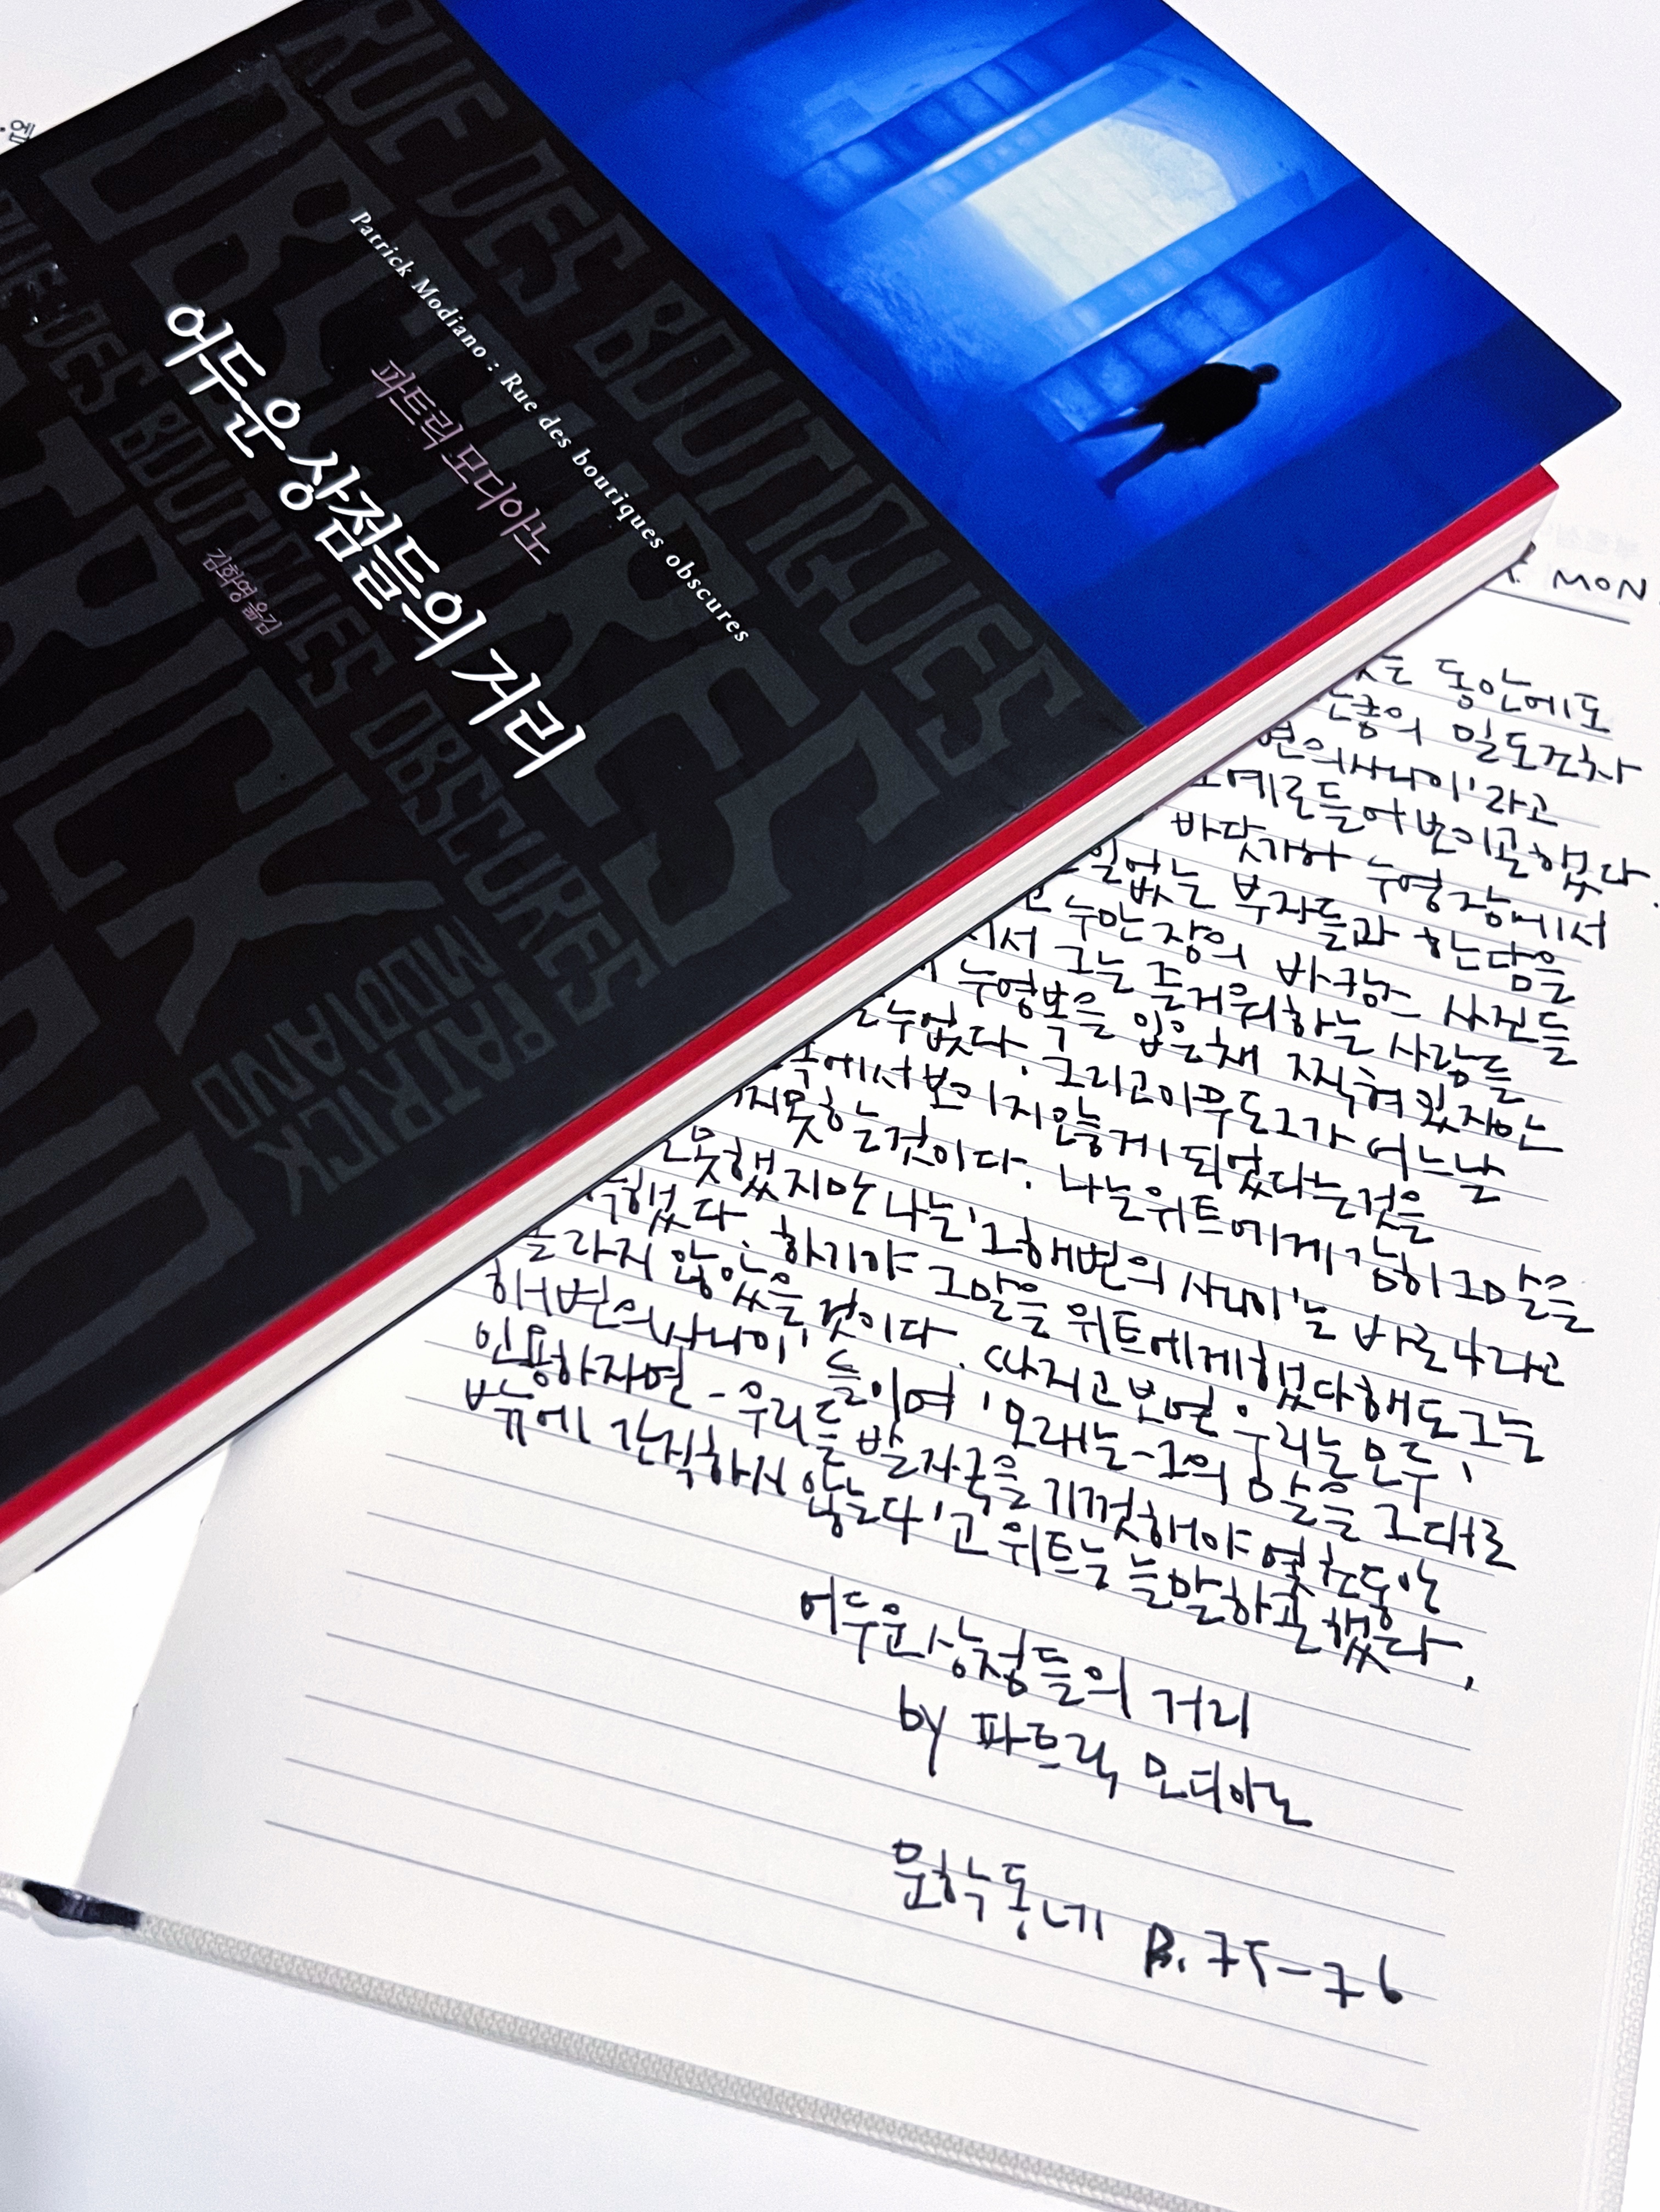 RUE DES BOUTIQUES
OBSCURES
Patrick Modiano : Rue des boutiques obscures
파트릭 모디아노
어두운 상점들의 거리
김화영 옮김
RUE DES BOUTIQUES OBSCURES
PATRICK
PATRICK
MODIANO
MON
는 동안에도
의 일도조차
변의사나이'라고
예로들어보이곤했다.
바닷가나 수영장에서
일없는 부자들과 한담을
수만장의 바캉스 사진들
서 그는 즐거워하는 사람들
수영복을 입은채 찍혀있지만
수없다. 그리고아무도그가 어느날
에서보이지않게 되었다는것을
지못하는것이다. 나는위트에게감히그말을
못했지만나는'그해변의 사나이'는 바로나라고
했다. 하기야 그말을 위트에게했다해도그는
놀라지 않았을 것이다. 따지고보면 우리는모두 '
해변의사나이' 들이며 '모래는-그의 말을 그대로
인용하자면-우리들발자국을 기껏해야 몇초동안
밖에 간직하지 않는다'고 위트는 늘말하곤했다.
어두운상점들의 거리
by 파트릭 모디아노
문학동네 P. 75-76